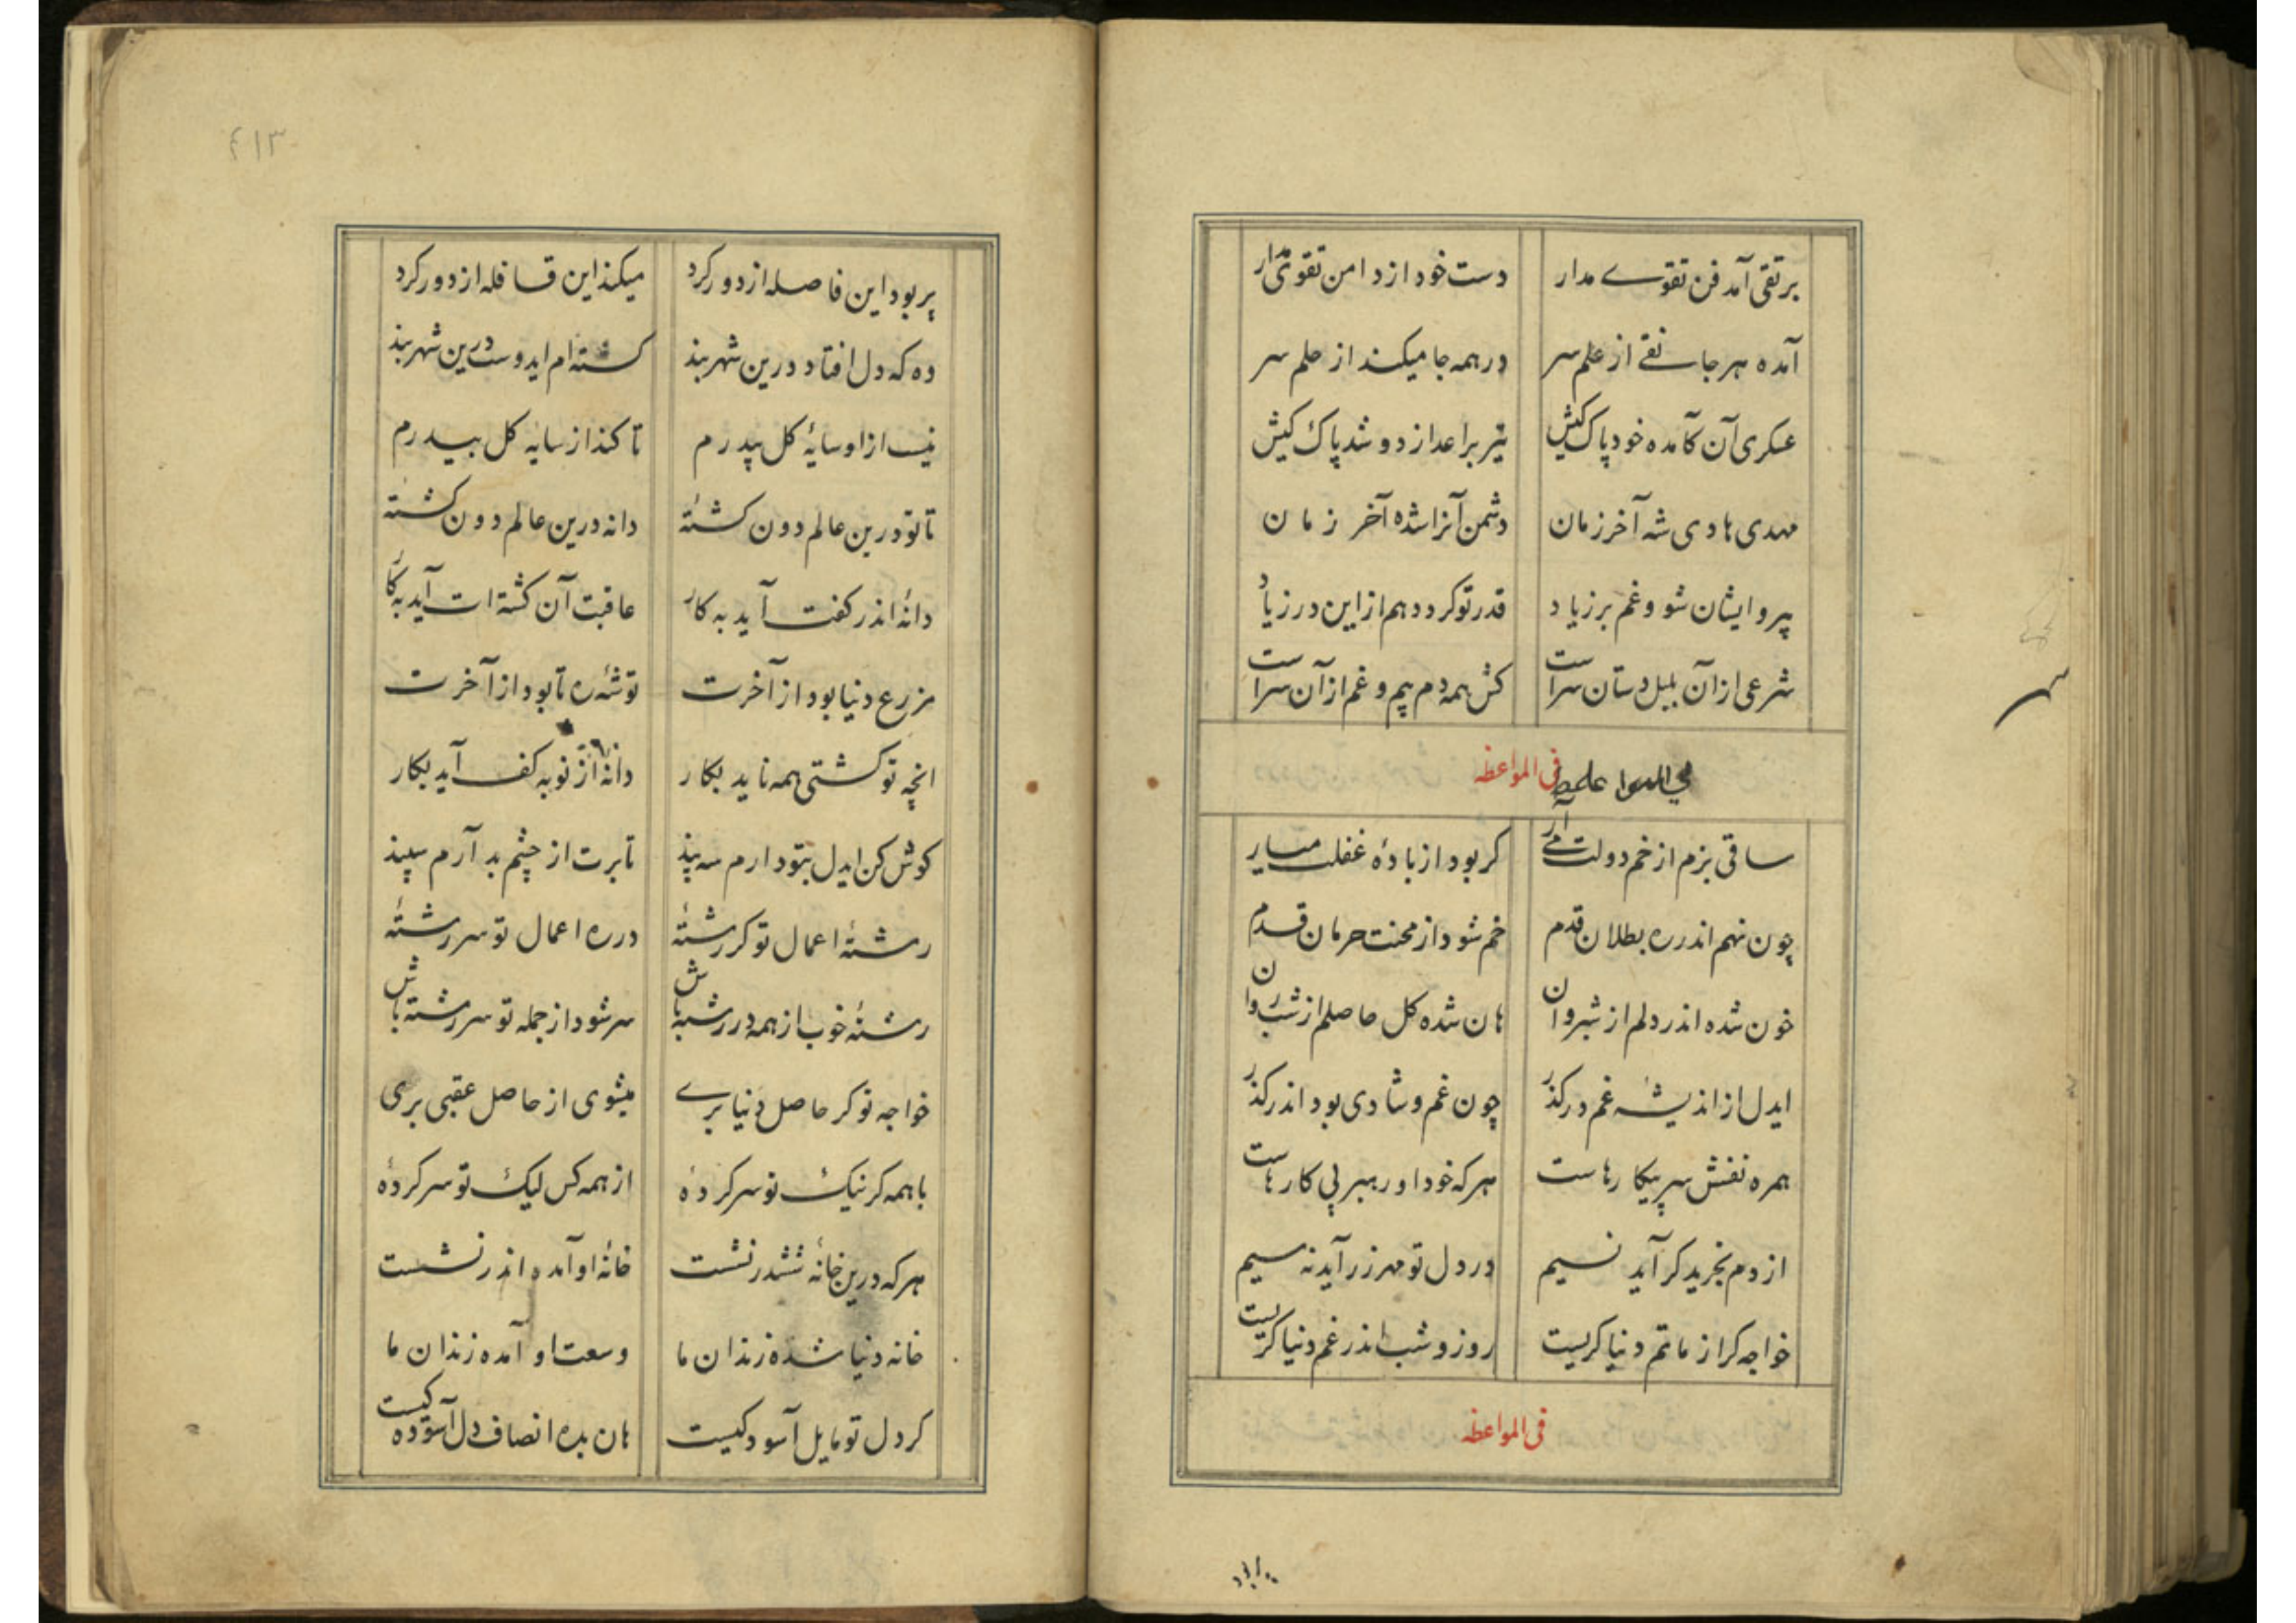 بر تقی آمد فن تقوے مدار دست خود از دامن تقوی مدار
آمده هر جا نقے از علم سر در همه جا میکند از حلم سر
عسکری آن کآمده خود پاک کیش تیر بر اعدا زد و شد پاک کیش
مهدی هادی شه آخر زمان دشمن آنرا شده آخر زمان
پیرو ایشان شو و غم بر زیاد قدر تو کردد هم از این در زیاد
شرعی از آن بلبل دستان سراست کش همه دم پیم و غم از آن سراست
فی المواعظه
ساقی بزم از خم دولت مے آر کر بود از بادهٔ غفلت میار
چون نهم اندر ره بطلان قدم خم شود از محنت حرمان قدم
خون شده اندر دلم از شیروان هان شده کل حاصلم از شیروان
ایدل از اندیشه غم در کذر چون غم و شادی بود اندر کذر
همره نفسش سر پیکارهاست هر که خود او رهبر پی کارهاست
از دم تجرید کر آید نسیم در دل تو مهر زر آید نه سیم
خواجه کر از ماتم دنیا کریست روز و شب اندر غم دنیا کریست
فی المواعظه
٤١٣
پر بود این فاصله از دور کرد میکند این قافله از دور کرد
وه که دل افتاد درین شهر بند کشته ام ایدوست درین شهر بند
نیست از او سایهٔ کل پدرم تا کند از سایه کل بید رم
تا تو درین عالم دون کشتهٔ دانه درین عالم دون کشتهٔ
دانهٔ اندر کفت آید به کار عاقبت آن کشته ات آید به کار
مزرع دنیا بود از آخرت توشهٔ ره تا بود از آخرت
انچه تو کشتی همه ناید بکار دانهٔ از نو به کف آید بکار
کوش کن ایدل بتو دارم سه پند تا برت از چشم بد آرم سپند
رشتهٔ اعمال تو کر رشتهٔ در ره اعمال تو سر رشتهٔ
رشتهٔ خوب از همه در رشته باش سر شود از جمله تو سر رشته باش
خواجه تو کر حاصل دنیا برے میشوی از حاصل عقبی بری
با همه کر نیک تو سر کردهٔ از همه کس لیک تو سر کردهٔ
هر که درین خانهٔ ششدر نشست خانهٔ او آمده اندر نشست
خانه دنیا شده زندان ما وسعت او آمده زندان ما
کر دل تو مایل آسودکیست هان بده انصاف دل آسوده کیست